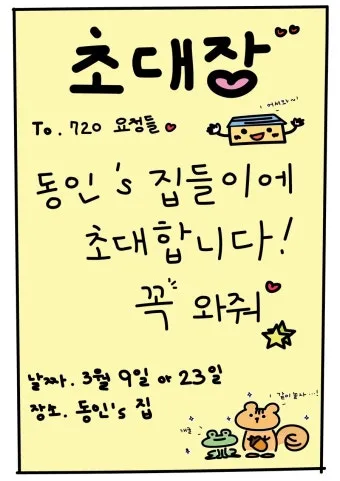 초대장
어서와~!
To. 720 요정들
동인's 집들이에
초대합니다!
꼭 와줘
날짜. 3월 9일 or 23일
장소. 동인's 집
같이 놀자...!